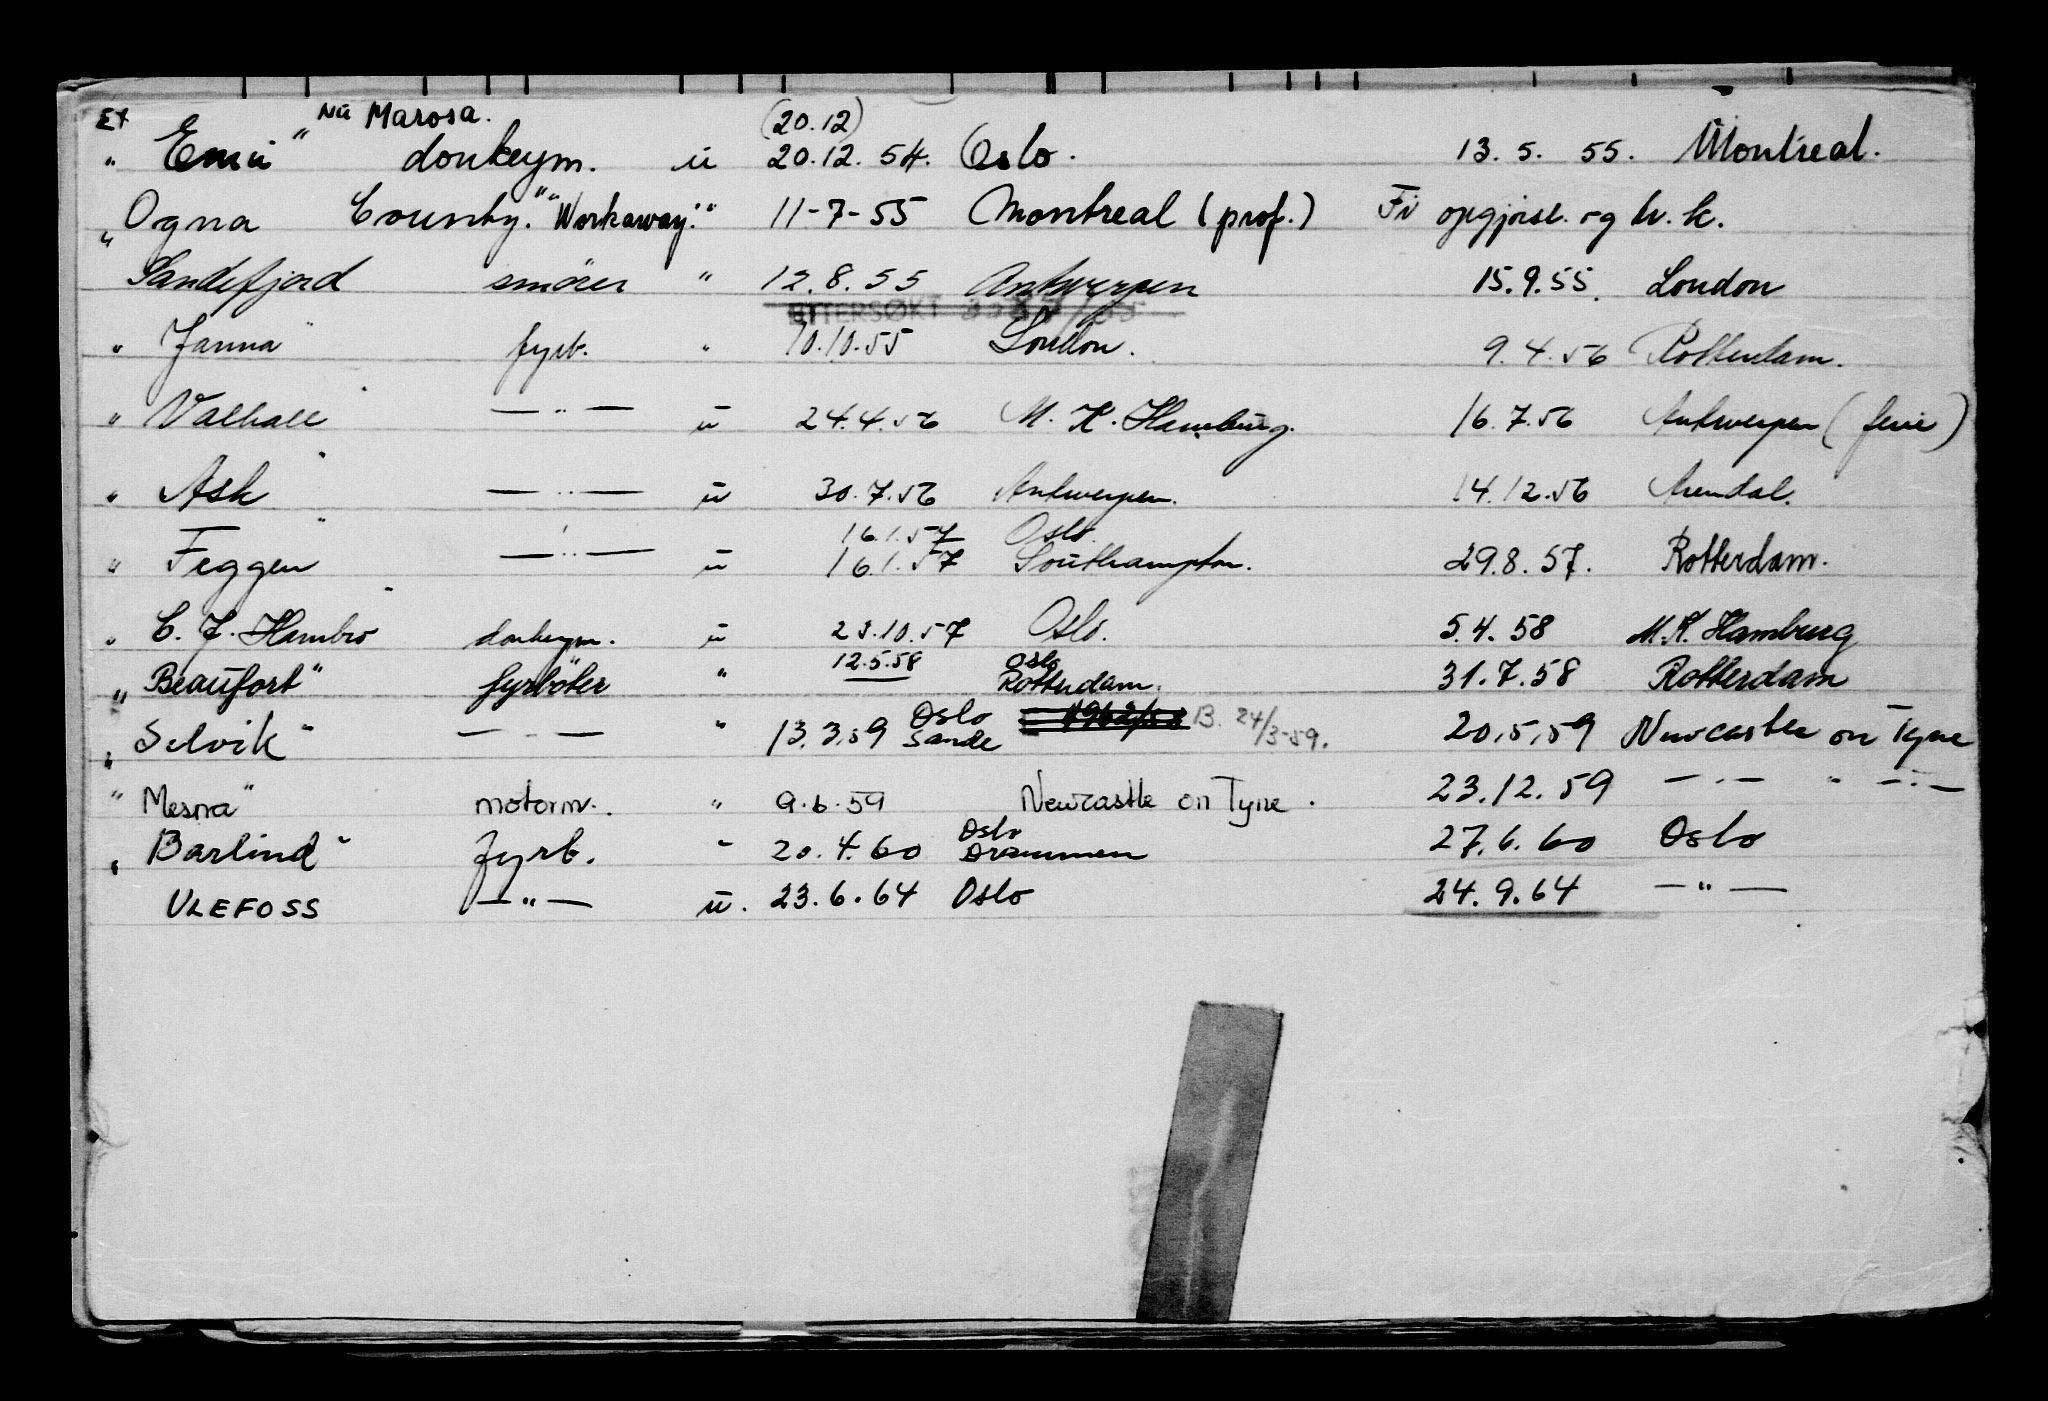 Ex Nu Marosa. (20.12)
„ Emu" donkeym. u 20.12.54. Oslo. 13.5.55. Montreal.
„ Ogna County." "Workaway." " 11-7-55 Montreal (prof.) Fi oppgjørsl. og h.k.
Sandefjord smører " 12.8.55 Antwerpen 15.9.55. London
ETTERSØKT
„ Janna" fyrb. " 10.10.55 London. 9.4.56 Rotterdam.
" Valhall" —"— u 24.4.56 M.K. Hamburg. 16.7.56 Antwerpen (ferie)
" Ask" —"— u 30.7.56 Antwerpen. 14.12.56 Arendal.
16.1.57 Oslo.
" Feggen" —"— u 16.1.57 Southampton. 29.8.57. Rotterdam.
" C.J. Hambro" donkeym. u 23.10.57 Oslo. 5.4.58 M.K. Hamburg
12.5.58 Oslo
„ Beaufort" fyrbøter " Rotterdam. 31.7.58 Rotterdam
Oslo B. 24/3-59.
„ Selvik" —"— " 13.3.59 Sande 20.5.59 Newcastle on Tyne
" Mesna" motorm. " 9.6.59 Newcastle on Tyne. 23.12.59 —"— " —"—
Oslo
„ Barlind" fyrb. " 20.4.60 Drammen 27.6.60 Oslo
ULEFOSS —"— u. 23.6.64 Oslo 24.9.64 —"—